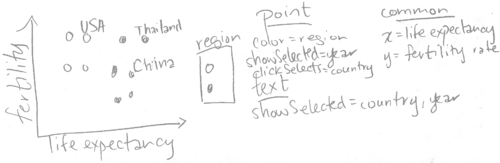 USA
Thailand
China
fertility
life expectancy
region
point
color=region
showSelected=year
clickSelects=country
text
showSelected=country, year
common
x=life expectancy
y=fertility rate